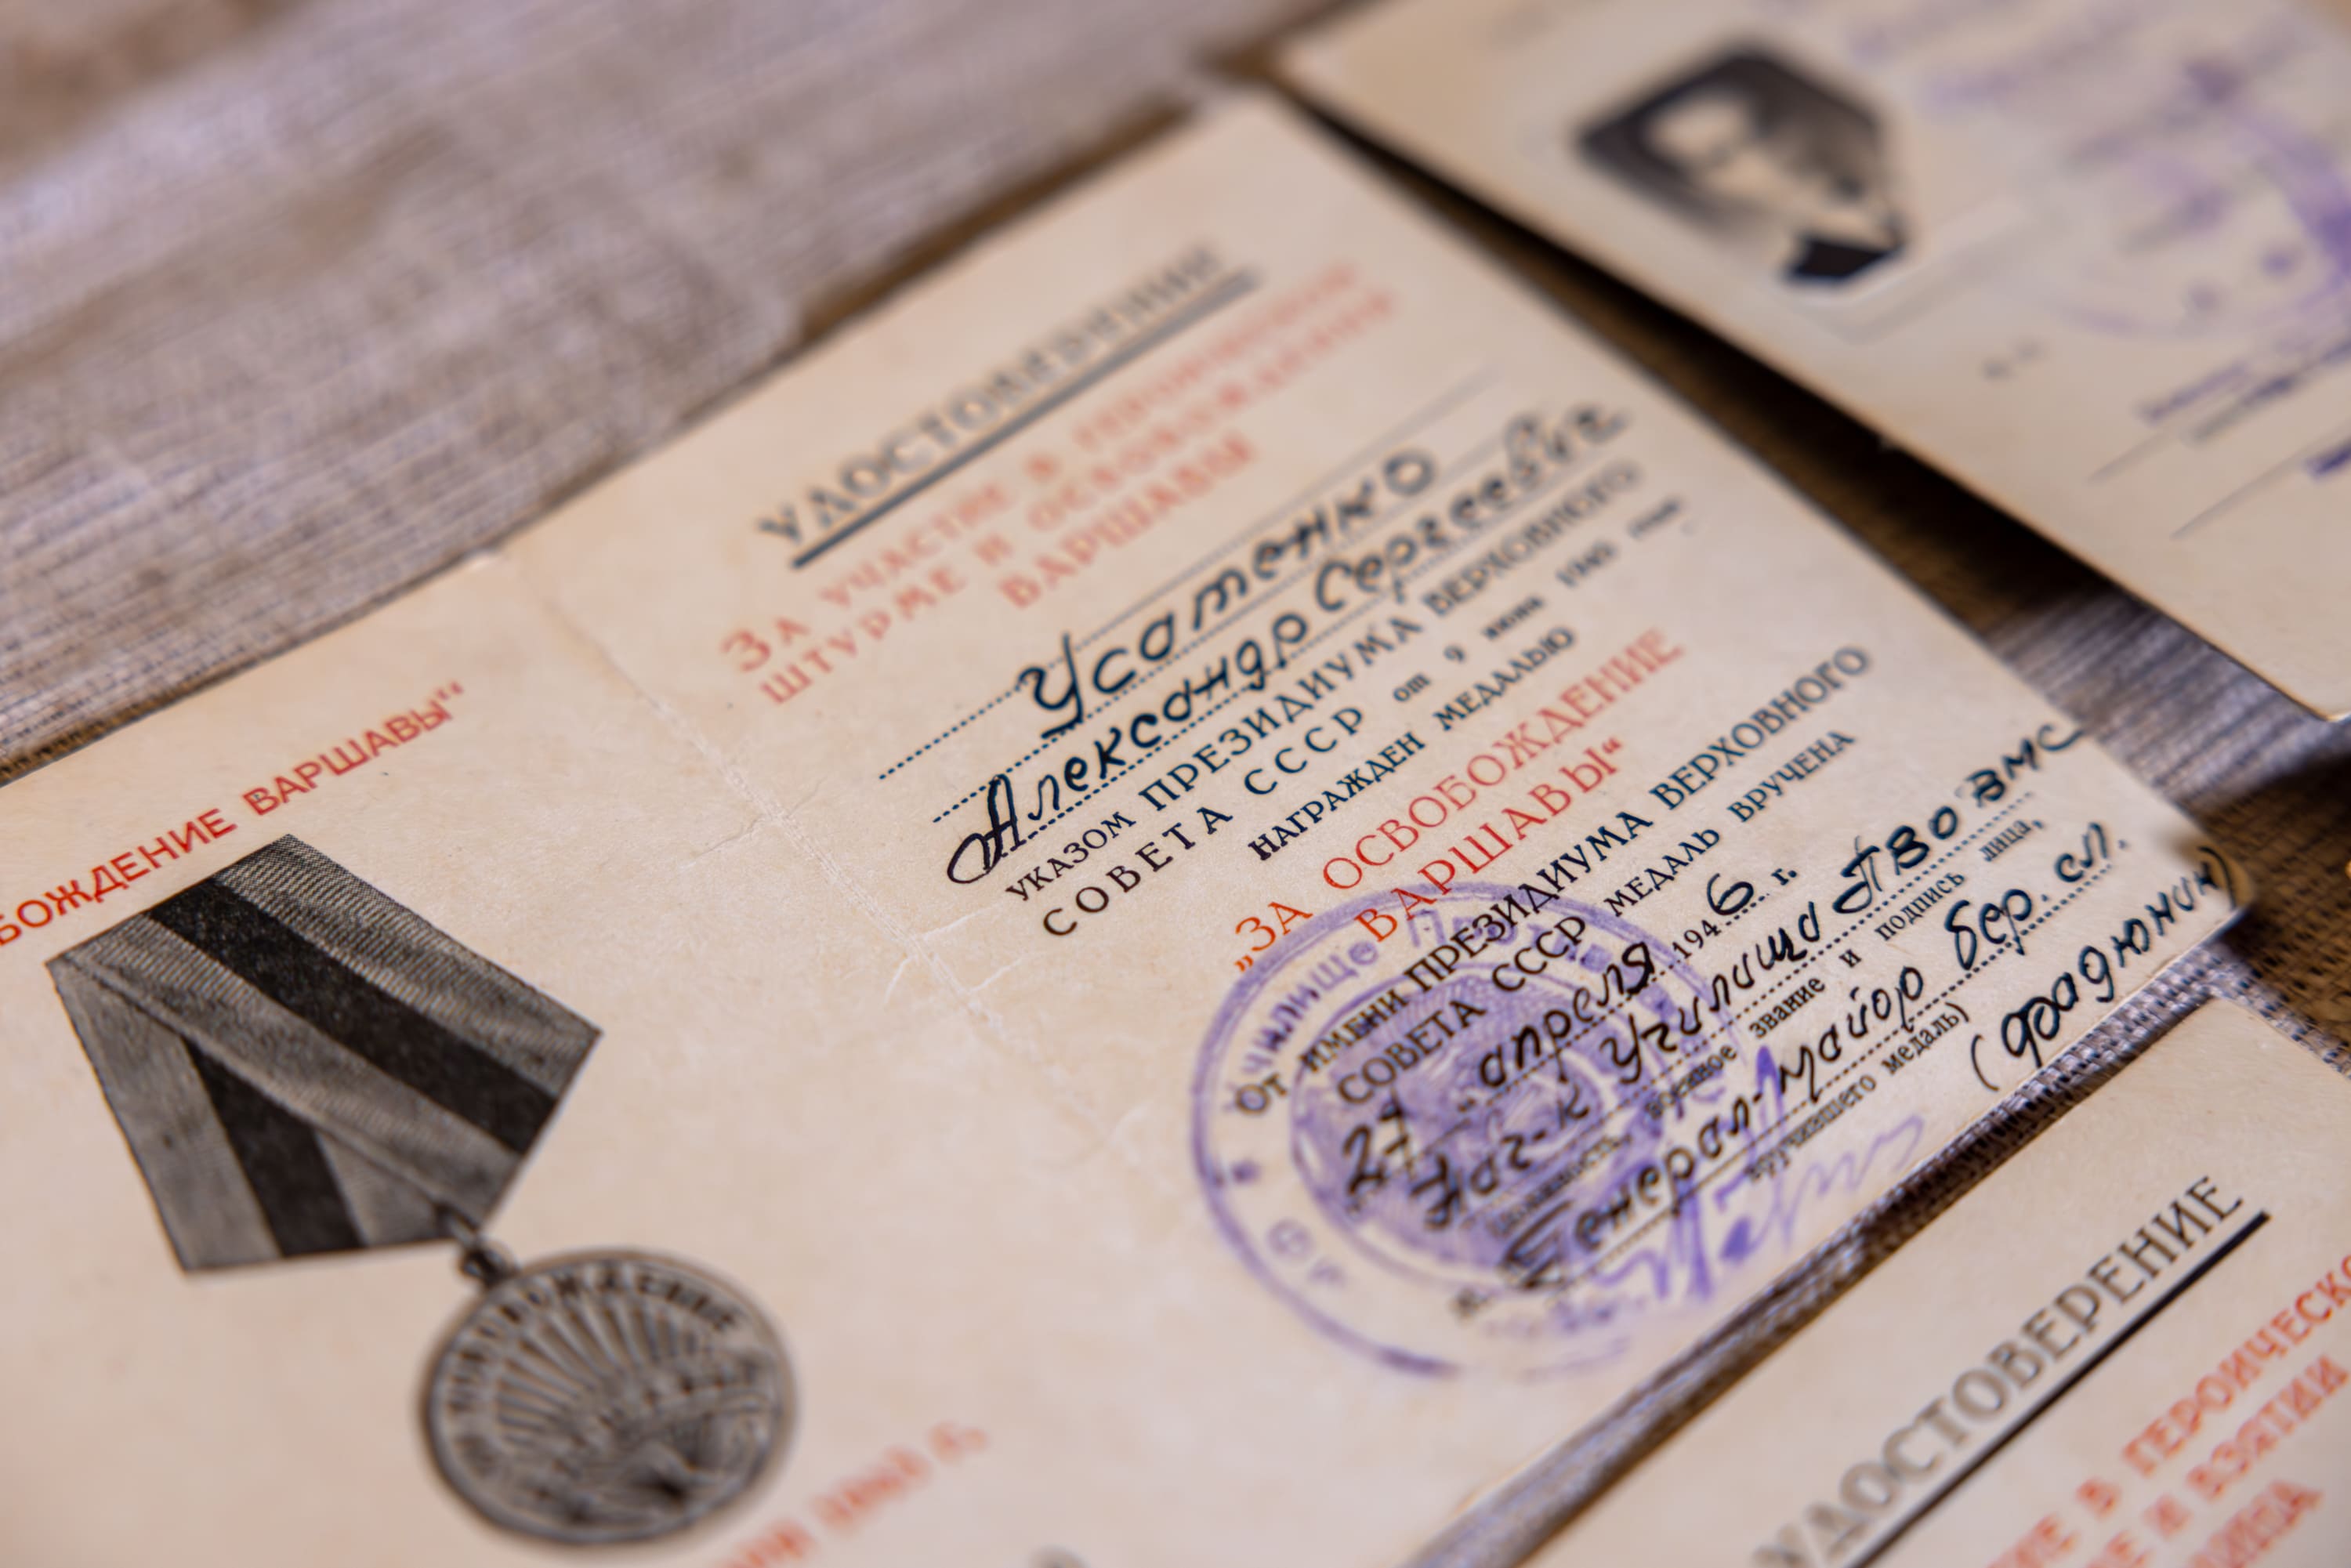 БОЖДЕНИЕ ВАРШАВЫ“
УДОСТОВЕРЕНИЕ
ЗА УЧАСТИЕ В ГЕРОИЧЕСКОМ
ШТУРМЕ И ОСВОБОЖДЕНИИ
ВАРШАВЫ
Усатенко
Александр Сергеевич
УКАЗОМ ПРЕЗИДИУМА ВЕРХОВНОГО
СОВЕТА СССР от 9 июня 1945 года
НАГРАЖДЕН МЕДАЛЬЮ
„ЗА ОСВОБОЖДЕНИЕ
ВАРШАВЫ“
От ИМЕНИ ПРЕЗИДИУМА ВЕРХОВНОГО
СОВЕТА СССР МЕДАЛЬ ВРУЧЕНА
27 апреля 1946 г.
Нач-к Училища ПВО ВМС
должность, военное звание и подпись лица,
Генерал-майор бер. сл.
вручившего медаль)
(Фрадюнин)
училище
УДОСТОВЕРЕНИЕ
В ГЕРОИЧЕСКО
И ВЗЯТИИ